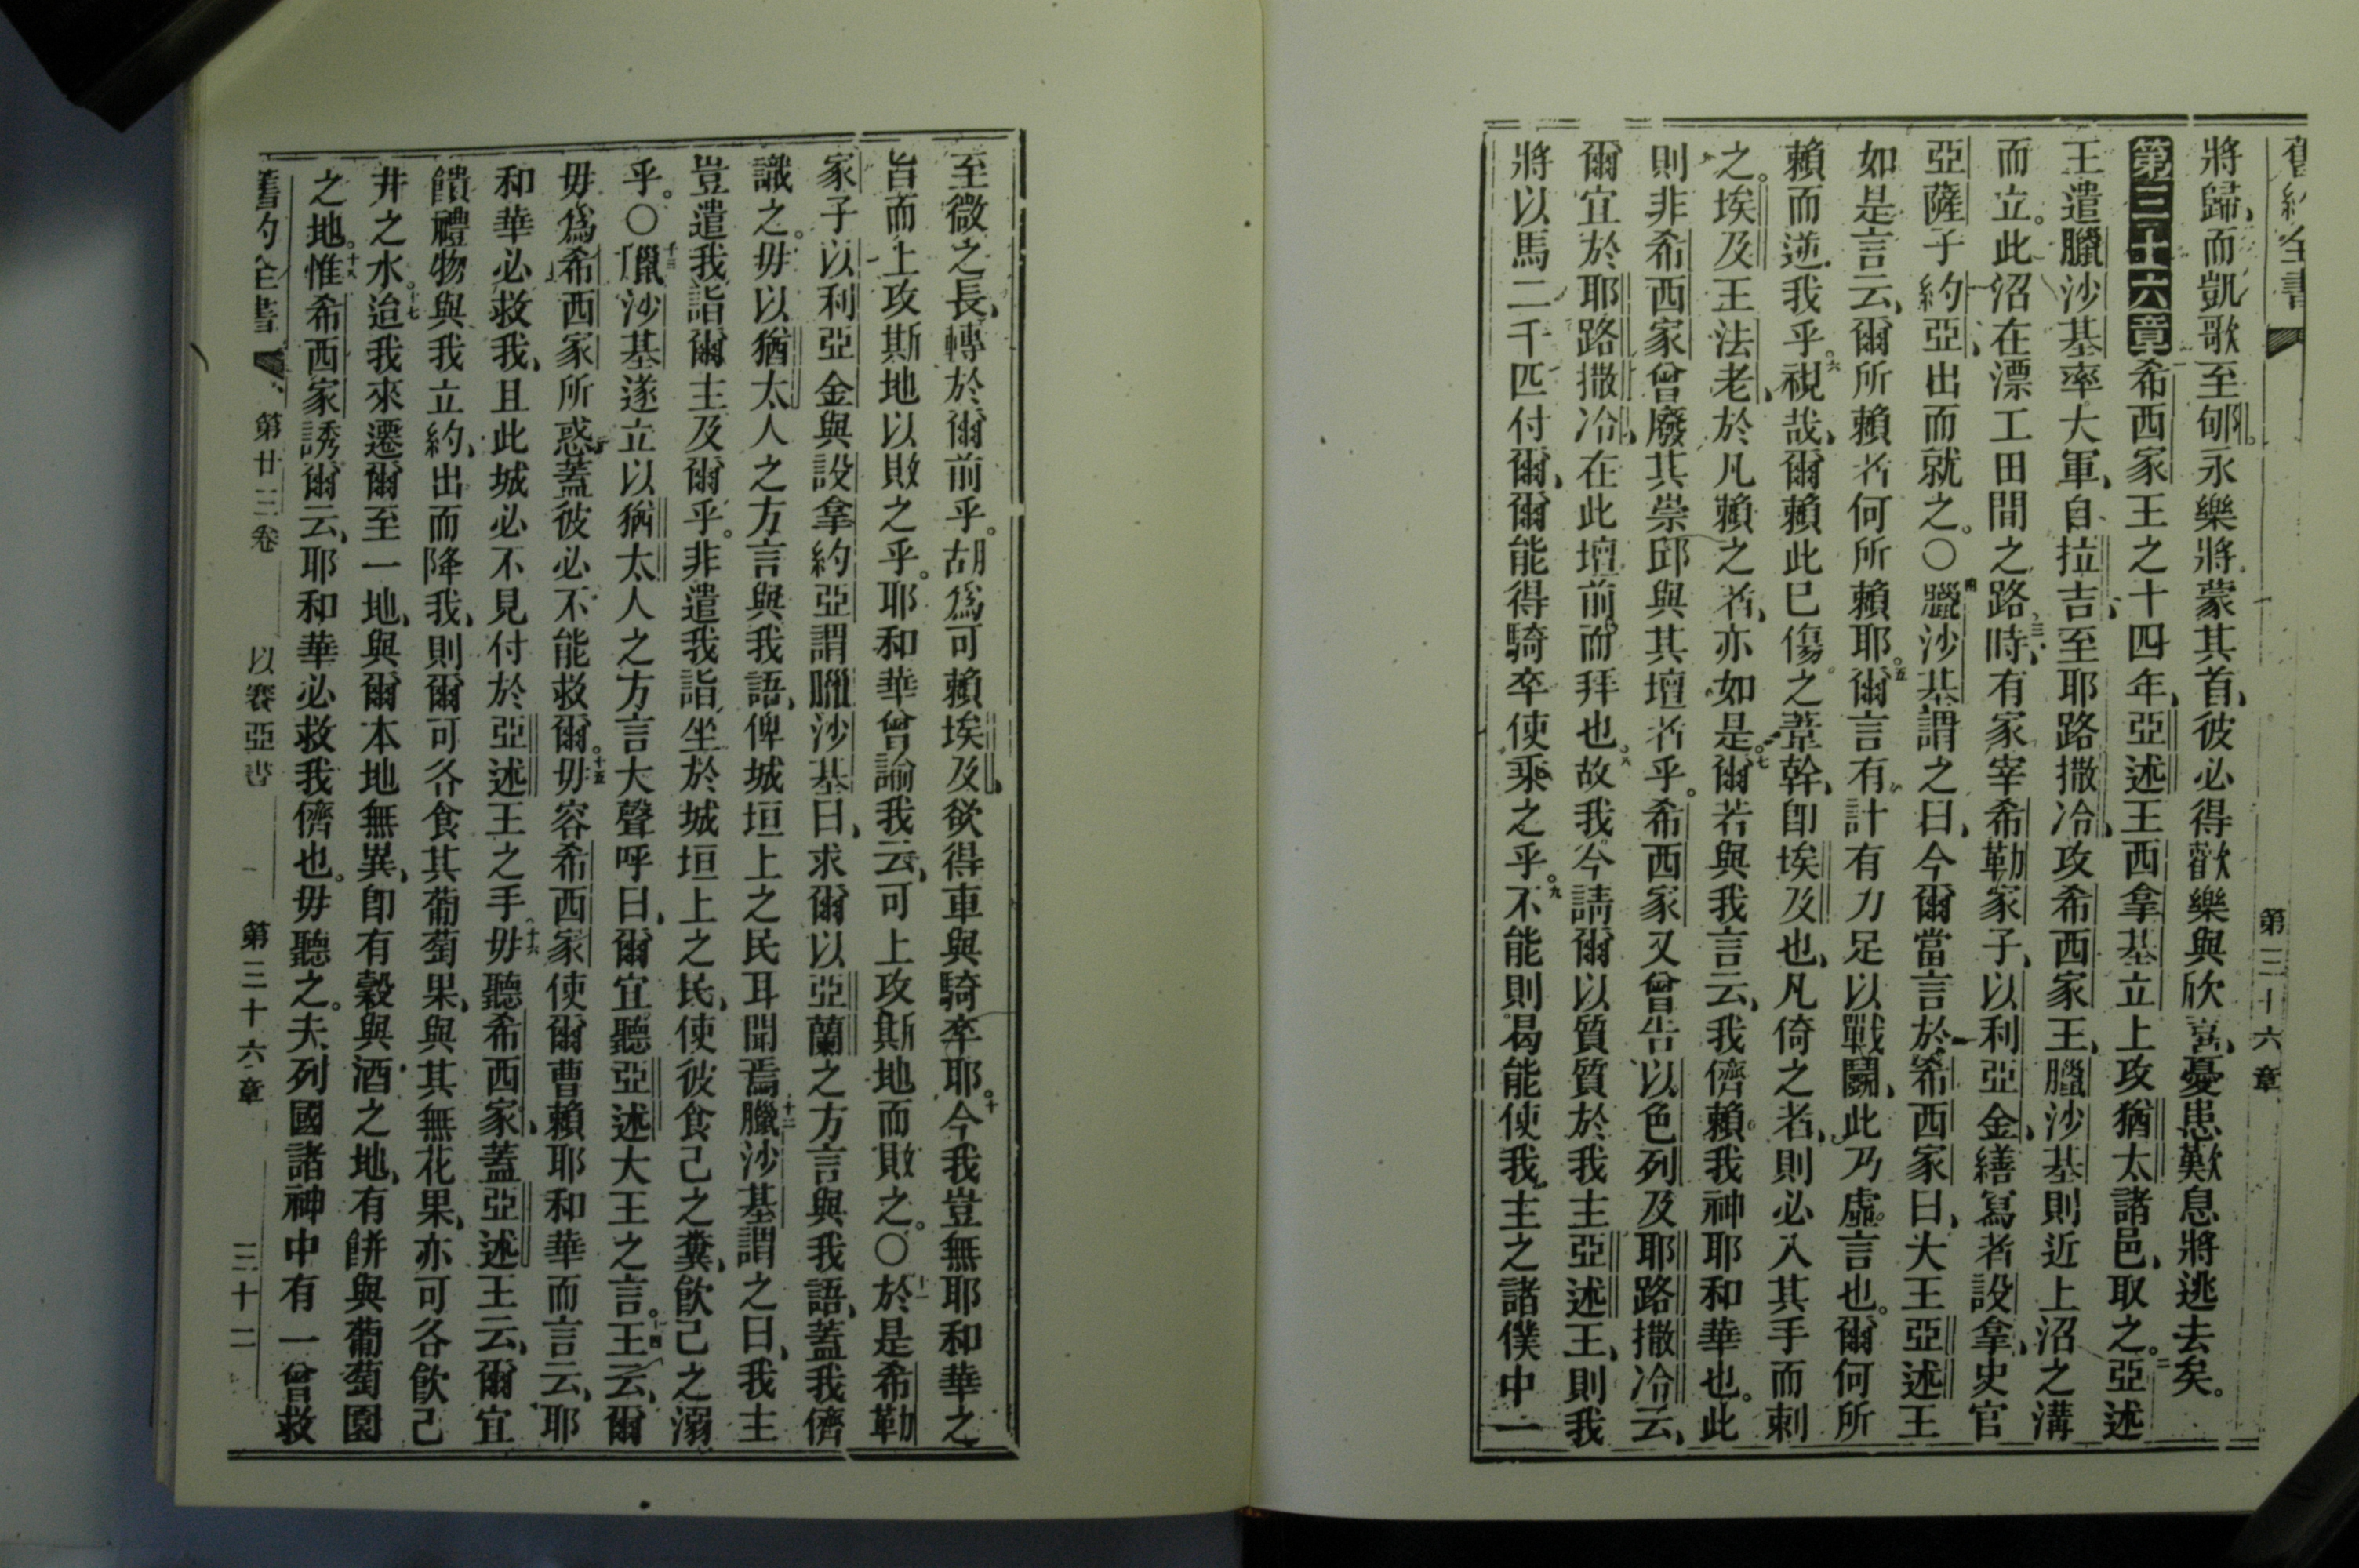 舊約全書 第三十六章
將歸、而凱歌至郇。永樂將蒙其首、彼必得歡樂與欣喜、憂患歎息將逃去矣。
第三十六章 一希西家王之十四年、亞述王西拿基立上攻猶太諸邑、取之。二亞述
王遣臘沙基率大軍、自拉吉、至耶路撒冷、攻希西家王、臘沙基則近上沼之溝
而立。此沼在漂工田間之路、三時、有家宰希勒家子、以利亞金、繕寫者設拿、史官
亞薩子約亞、出而就之。〇四臘沙基謂之曰、今爾當言於希西家曰、大王亞述王
如是言云、爾所賴者何所賴耶。五爾言有計有力足以戰鬭、此乃虛言也。爾何所
賴而逆我乎。六視哉、爾賴此已傷之葦幹、卽埃及也、凡倚之者、則必入其手而刺
之。埃及王法老、於凡賴之者、亦如是。七爾若與我言云、我儕賴我神耶和華也。此
則非希西家曾廢其崇邱與其壇者乎。希西家又曾告以色列及耶路撒冷云、
爾宜於耶路撒冷、在此壇前而拜也。八故我今請爾以質質於我主亞述王、則我
將以馬二千匹付爾、爾能得騎卒使乘之乎。九不能則曷能使我主之諸僕中一
至微之長、轉於爾前乎。胡爲可賴埃及、欲得車與騎卒耶。十今我豈無耶和華之
旨而上攻斯地以敗之乎。耶和華曾諭我云、可上攻斯地而敗之。〇十一於是希勒
家子以利亞金與設拿約亞謂臘沙基曰、求爾以亞蘭之方言與我語、蓋我儕
識之。毋以猶太人之方言與我語、俾城垣上之民耳聞焉。十二臘沙基謂之曰、我主
豈遣我詣爾主及爾乎。非遣我詣坐於城垣上之民、使彼食己之糞、飮己之溺
乎。〇十三臘沙基遂立以猶太人之方言大聲呼曰、爾宜聽亞述大王之言。十四王云、爾
毋爲希西家所惑、蓋彼必不能救爾。十五毋容希西家使爾曹賴耶和華而言云、耶
和華必救我、且此城必不見付於亞述王之手。十六毋聽希西家、蓋亞述王云、爾宜
饋禮物與我立約、出而降我、則爾可各食其葡萄果、與其無花果、亦可各飮己
井之水。十七迨我來遷爾至一地、與爾本地無異、卽有穀與酒之地、有餅與葡萄園
之地。十八惟希西家誘爾云、耶和華必救我儕也。毋聽之。夫列國諸神中有一曾救
舊約全書 第廿三卷 以賽亞書 第三十六章 三十二